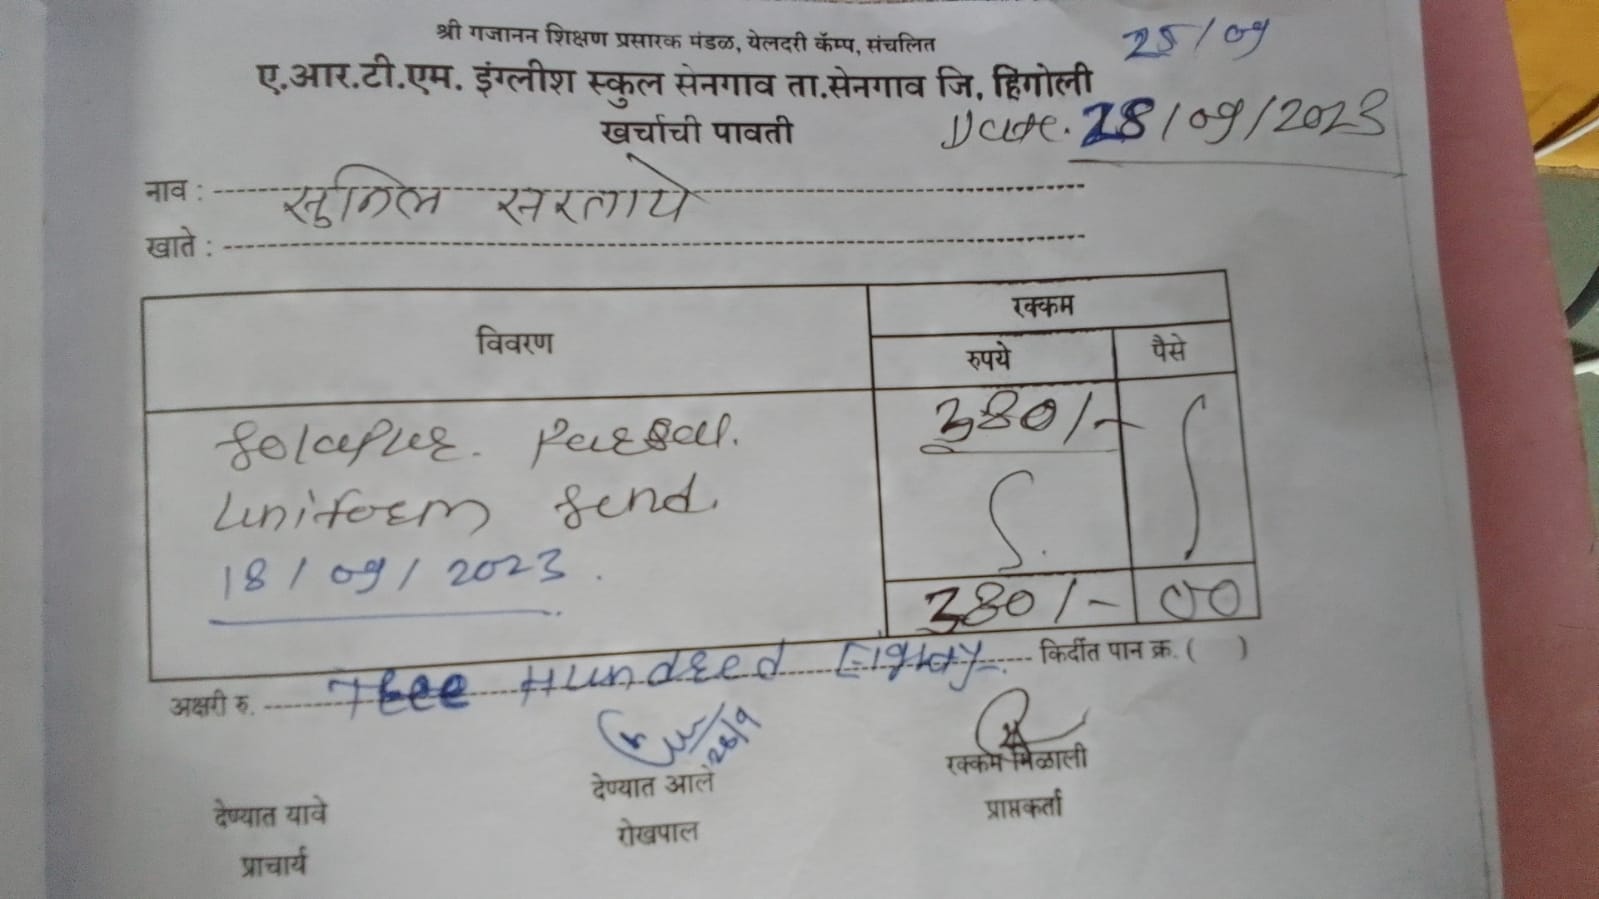 श्री गजानन शिक्षण प्रसारक मंडळ, येलदरी कॅम्प, संचलित
25/09
ए.आर.टी.एम. इंग्लीश स्कुल सेनगाव ता.सेनगाव जि. हिंगोली
खर्चाची पावती
Date. 28/09/2023
नाव : सुनिल सरतापे
खाते :
विवरण
रक्कम
रुपये
पैसे
Solapur. Parsal. 380/-
uniform Send.
18/09/2023.
380/- 00
अक्षरी रु. Three Hundred Eighty. किर्दीत पान क्र. ( )
28/9
देण्यात यावे
प्राचार्य
देण्यात आले
रोखपाल
रक्कम मिळाली
प्राप्तकर्ता